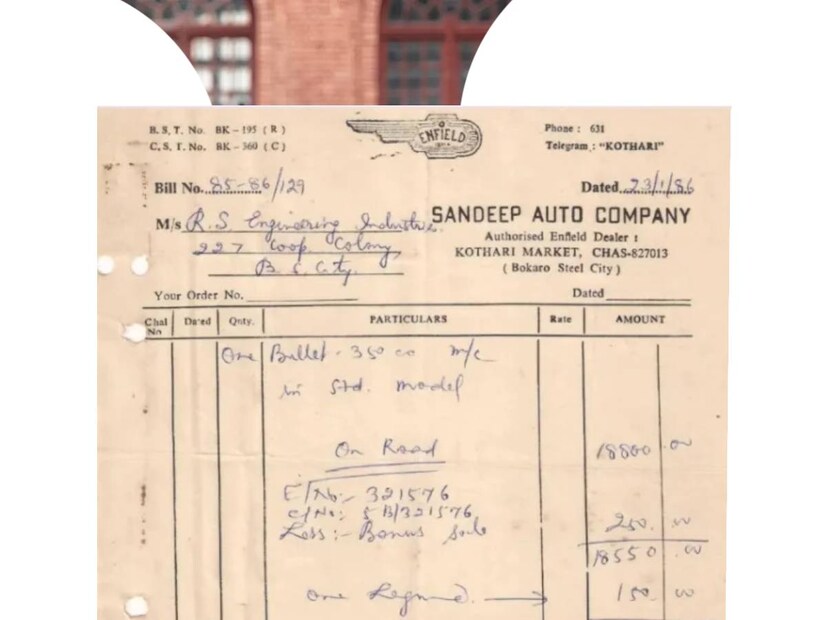 B. S. T. No. BK – 195 ( R )
C. S. T. No. BK – 360 ( C )
ENFIELD
Phone : 631
Telegram : "KOTHARI"
Bill No. 85-86/129
Dated 23/1/86
M/s R. S. Engineering Industries.
227 Coop. Colony,
B. S. City.
SANDEEP AUTO COMPANY
Authorised Enfield Dealer :
KOTHARI MARKET, CHAS-827013
( Bokaro Steel City )
Your Order No.
Dated
Chal No Dated Qnty. PARTICULARS Rate AMOUNT
One Bullet - 350 cc m/c
in Std. model
On Road 18800 .00
E/No:- 321576
C/No:- 5 B/321576
Less :- Bonus 250. 00
18550 .00
one Legguard. 150. 00